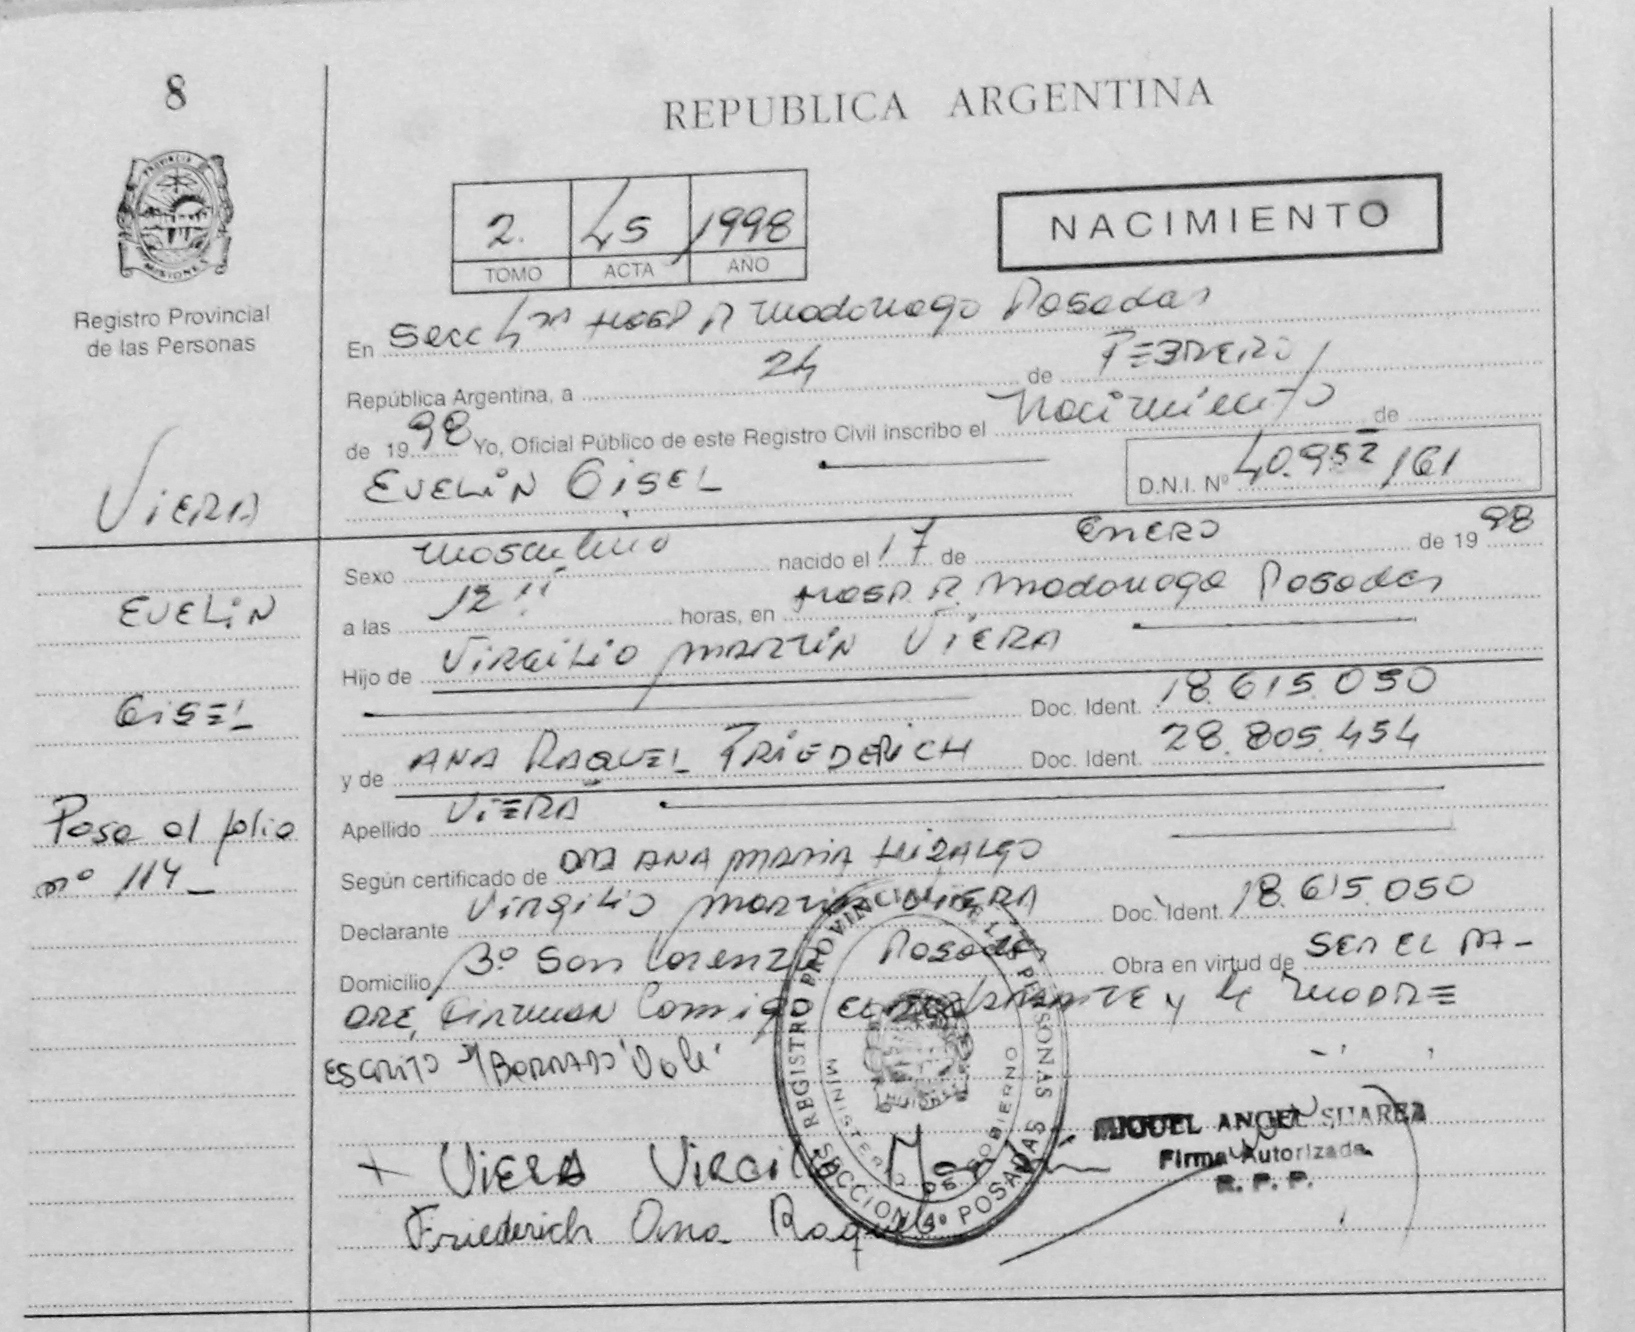 8
REPUBLICA ARGENTINA
PROVINCIA
MISIONES
Registro Provincial
de las Personas
2. 45 1998
TOMO ACTA AÑO
NACIMIENTO
En Secc 4ta HOSP R Madariaga Posadas
República Argentina, a 24 de FEBRERO
de 1998 Yo, Oficial Público de este Registro Civil inscribo el Nacimiento de
EVELIN GISEL
D.N.I. Nº 40.952/161
VIERA
EVELIN
GISEL
Pasa al folio
nº 114_
Sexo masculino nacido el 17 de ENERO de 1998
a las 12 horas, en HOSP. R. Madariaga Posadas
Hijo de VIRGILIO MARTIN VIERA
Doc. Ident. 18.615.050
y de ANA RAQUEL FRIEDERICH Doc. Ident. 28.805.454
Apellido VIERA
Según certificado de DRA ANA MARIA HIDALGO
Declarante VIRGILIO MARTIN VIERA Doc. Ident. 18.615.050
Domicilio Bº San Lorenzo Posadas Obra en virtud de SER EL PA-
DRE, FIRMAN Conmigo EL DECLARANTE y la MADRE
ESCRITO Y BORRADO "Vale"
VIERA VIRGILIO Martín
Friederich Ana Raquel
REGISTRO PROVINCIAL DE LAS PERSONAS
MINISTERIO DE GOBIERNO
SECCION 4º POSADAS
MIGUEL ANGEL SUAREZ
Firma Autorizada
R. P. P.